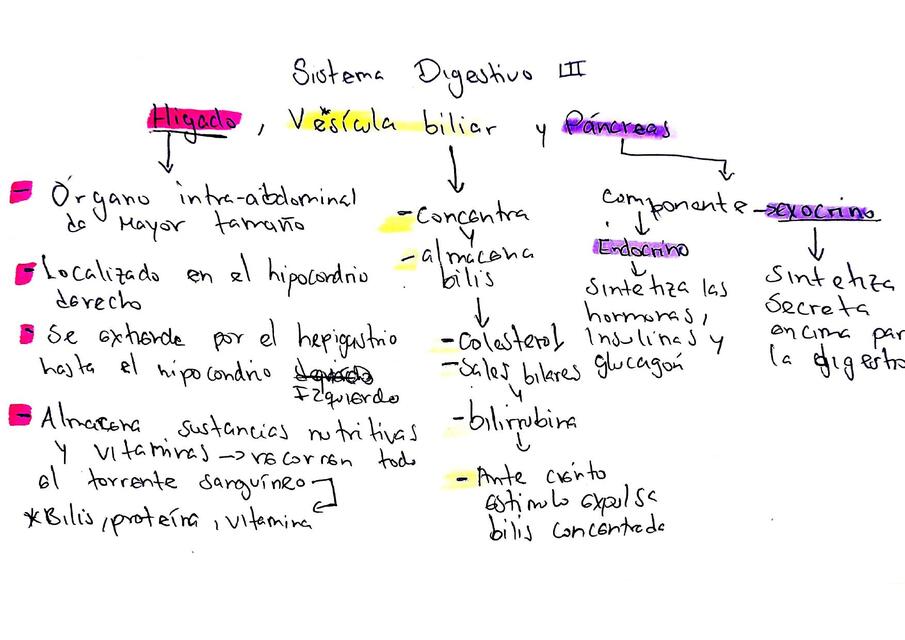 Sistema Digestivo III
Hígado, Vesícula biliar y Páncreas
- Órgano intra-abdominal
de Mayor tamaño
- Localizado en el hipocondrio
derecho
- Se extiende por el hepigastrio
hasta el hipocondrio
Izquierdo
- Almacena sustancias nutritivas
y vitaminas → recorren todo
el torrente sanguíneo
*Bilis, proteína, vitamina
- Concentra
y
- almacena
bilis
- Colesterol
- Sales biliares
y
- bilirrubina
- Ante cierto
estimulo expulsa
bilis concentrada
Componente → exocrino
Endocrino
Sintetiza las
hormonas,
Insulinas y
glucagón
Sintetiza
Secreta
encima par
la digestro